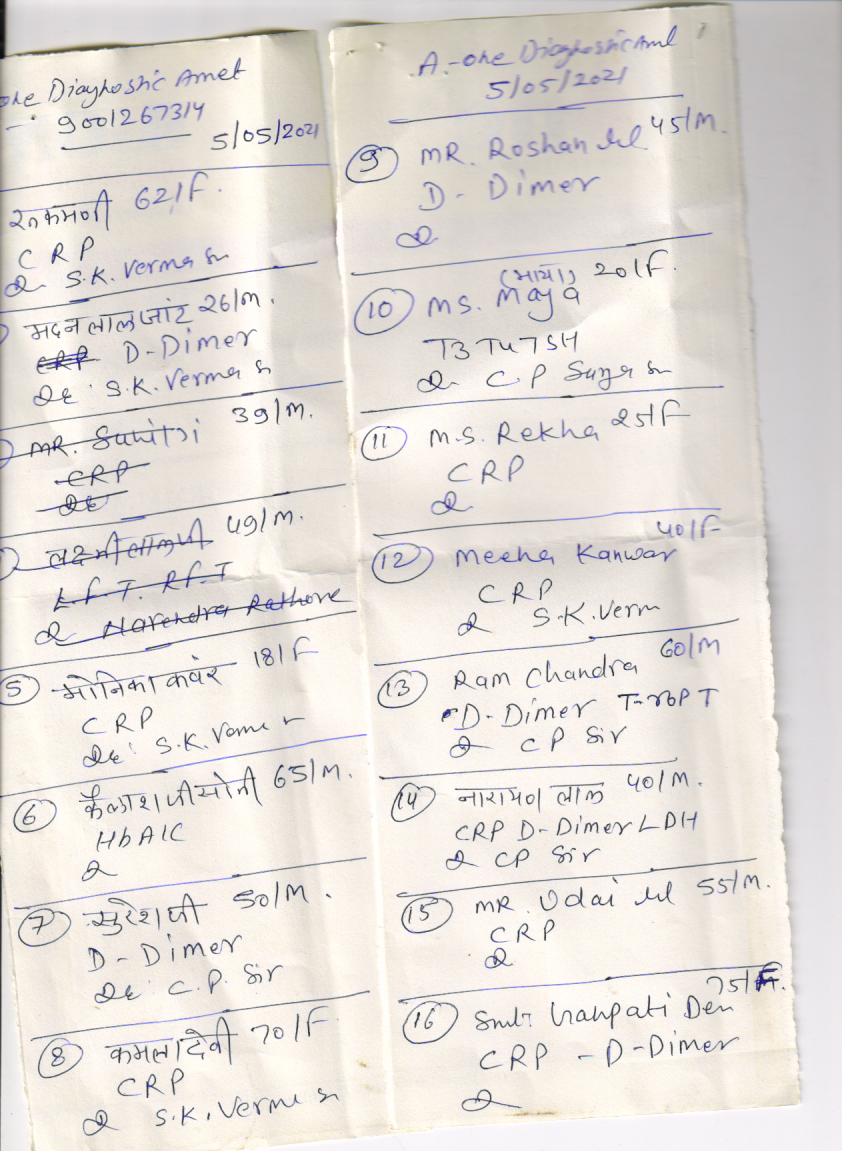 one Diagnostic Amet
9001267314
5/05/2021
रुकमणी 62/F.
CRP
S.K. Verma Sr
मदन लाल जाट 26/M.
CRP D-Dimer
De: S.K. Verma Sr
MR. 39/M.
CRP
De
लक्ष्मी लाल जी 49/M.
L.F.T. RFT
Narendra Rathore
5 मोनिका कवंर 18/F
CRP
De: S.K. Verma Sr
6 कैलाश जी सोनी 65/M.
HbA1C
7 सुरेश जी 50/M.
D-Dimer
De: C.P. Sir
8 कमला देवी 70/F.
CRP
S.K. Verma Sr
A-one Diagnostic Amet
5/05/2021
9 MR. Roshan lal 45/M.
D-Dimer
(माया)
10 MS. Maya 20/F.
T3 T4 TSH
C.P Sir
11 M.S. Rekha 25/F
CRP
40/F
12 Meena Kanwar
CRP
S.K. Verm
13 Ram Chandra 60/M
D-Dimer
CP Sir
14 नारायण लाल 40/M.
CRP D-Dimer LDH
CP Sir
15 MR. Udai lal 55/M.
CRP
75/F.
16 Smt Devi
CRP - D-Dimer